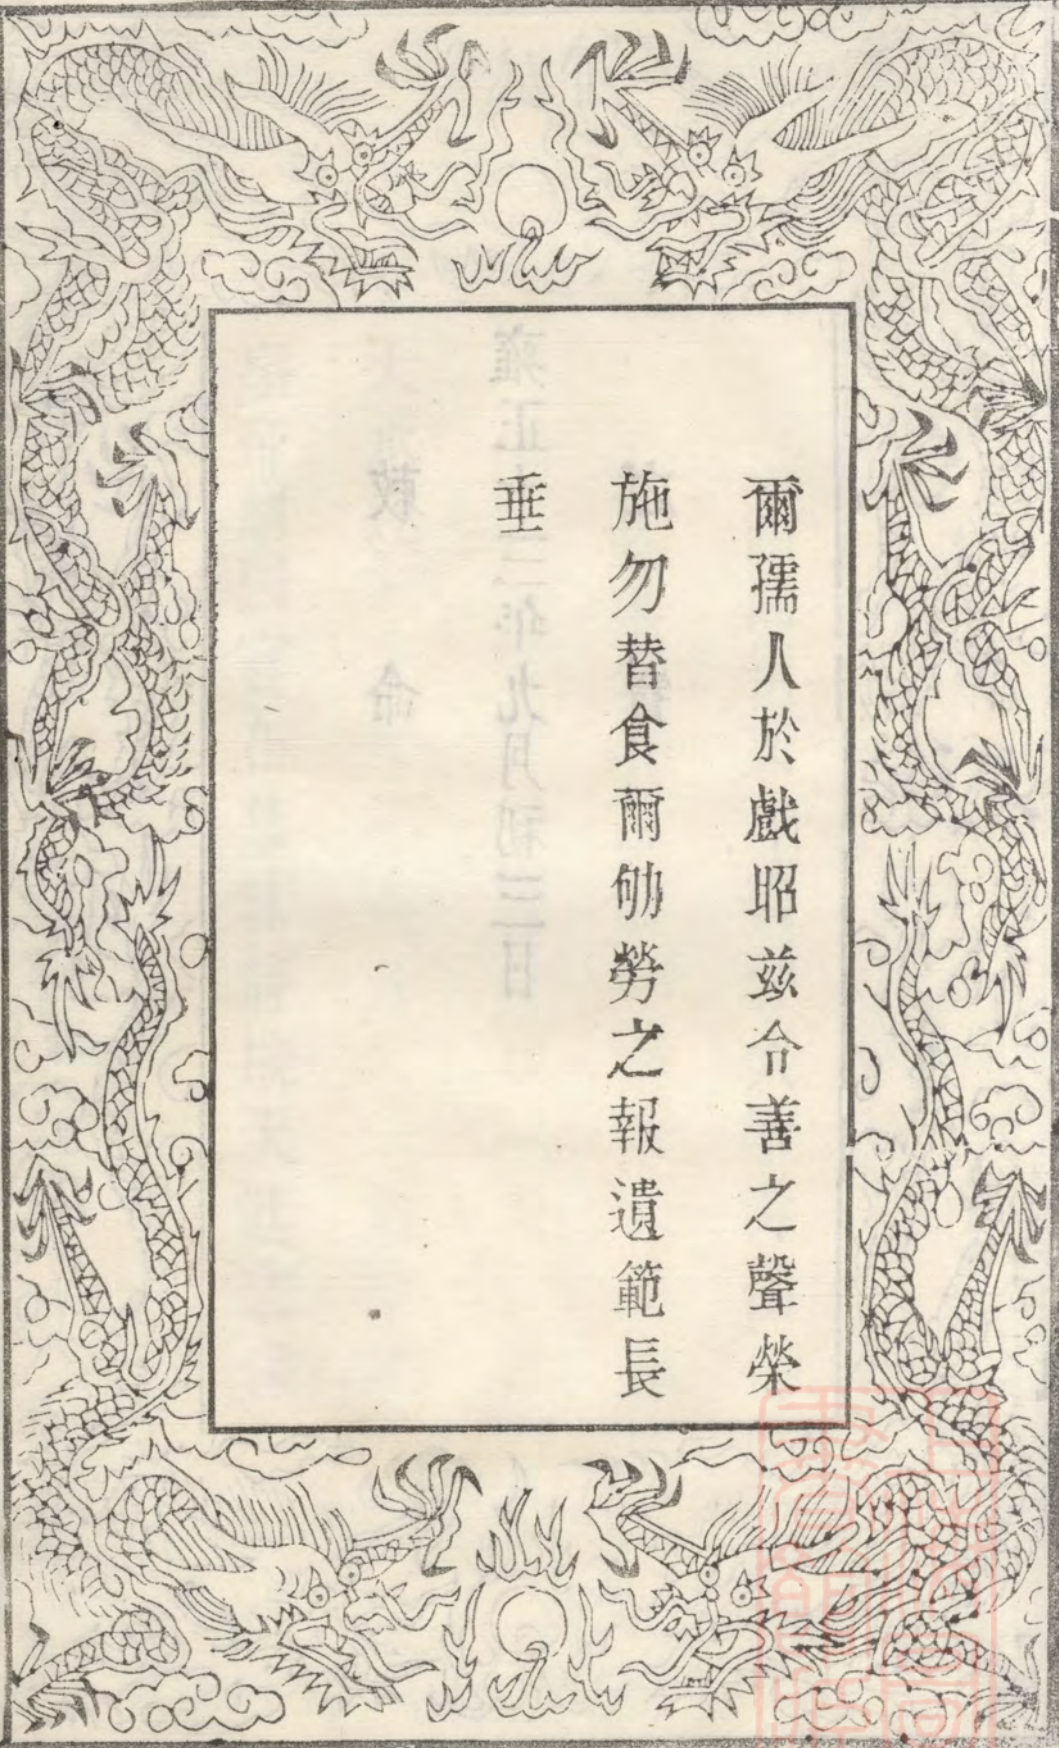 爾孺人於戲昭兹令善之聲榮
施勿替食爾劬勞之報遺範長
垂